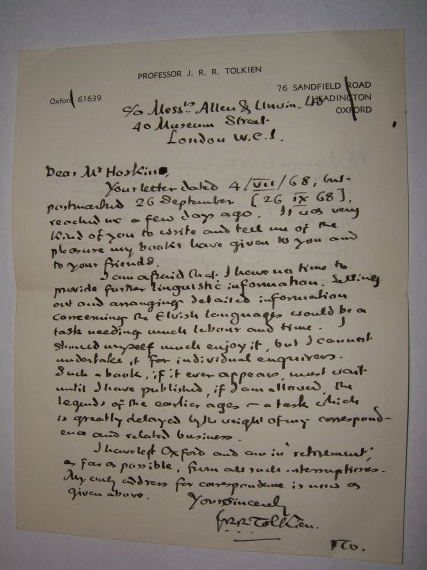 PROFESSOR J. R. R. TOLKIEN
Oxford 61639
76 SANDFIELD ROAD
HEADINGTON
OXFORD
c/o Messrs Allen & Unwin, Ltd
40 Museum Street
London W.C.1.
Dear Mr Hoskins,
Your letter dated 4/VII/68, but
postmarked 26 September [26 IX 68],
reached me a few days ago. It was very
kind of you to write and tell me of the
pleasure my books have given to you and
to your friends.
I am afraid that I have no time to
provide further linguistic information. Setting
out and arranging detailed information
concerning the Elvish languages would be a
task needing much labour and time. I
should myself much enjoy it, but I cannot
undertake it for individual enquirers.
Such a book, if it ever appears, must wait
until I have published, if I am allowed, the
legends of the earlier ages – a task which
is greatly delayed by the weight of my correspond-
ence and related business.
I have left Oxford and am in "retirement",
as far as possible, from all such interruptions.
My only address for correspondence is now as
given above.
Yours sincerely
J.R.R. Tolkien.